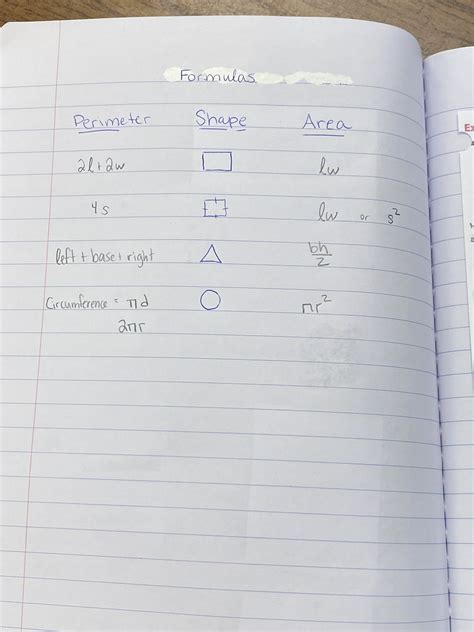 Formulas
Perimeter Shape Area
2l + 2w lw
4s lw or s²
left + base + right bh/2
Circumference = πd πr²
2πr